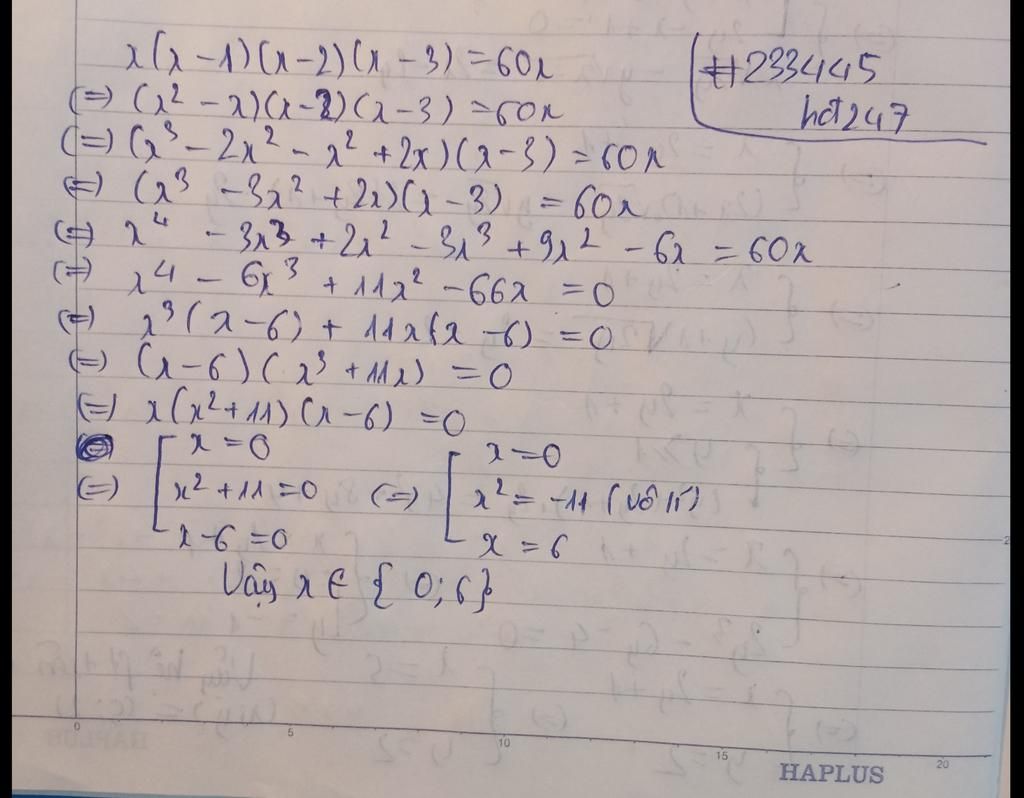 x(x-1)(x-2)(x-3)=60x
#233445
hđ247
(=) (x² - x)(x-2)(x-3)=60x
(=) (x³ - 2x² - x² + 2x)(x-3) = 60x
(=) (x³ - 3x² + 2x)(x-3) = 60x
(=) x⁴ - 3x³ + 2x² - 3x³ + 9x² - 6x = 60x
(=) x⁴ - 6x³ + 11x² - 66x = 0
(=) x³(x-6) + 11x(x-6) = 0
(=) (x-6)(x³+11x) = 0
(=) x(x²+11)(x-6) = 0
(=) [ x=0 [ x=0
x²+11=0 (=) x² = -11 (vô lí)
x-6=0 x=6
Vậy x ∈ {0;6}
0 5 10 15 20
HAPLUS